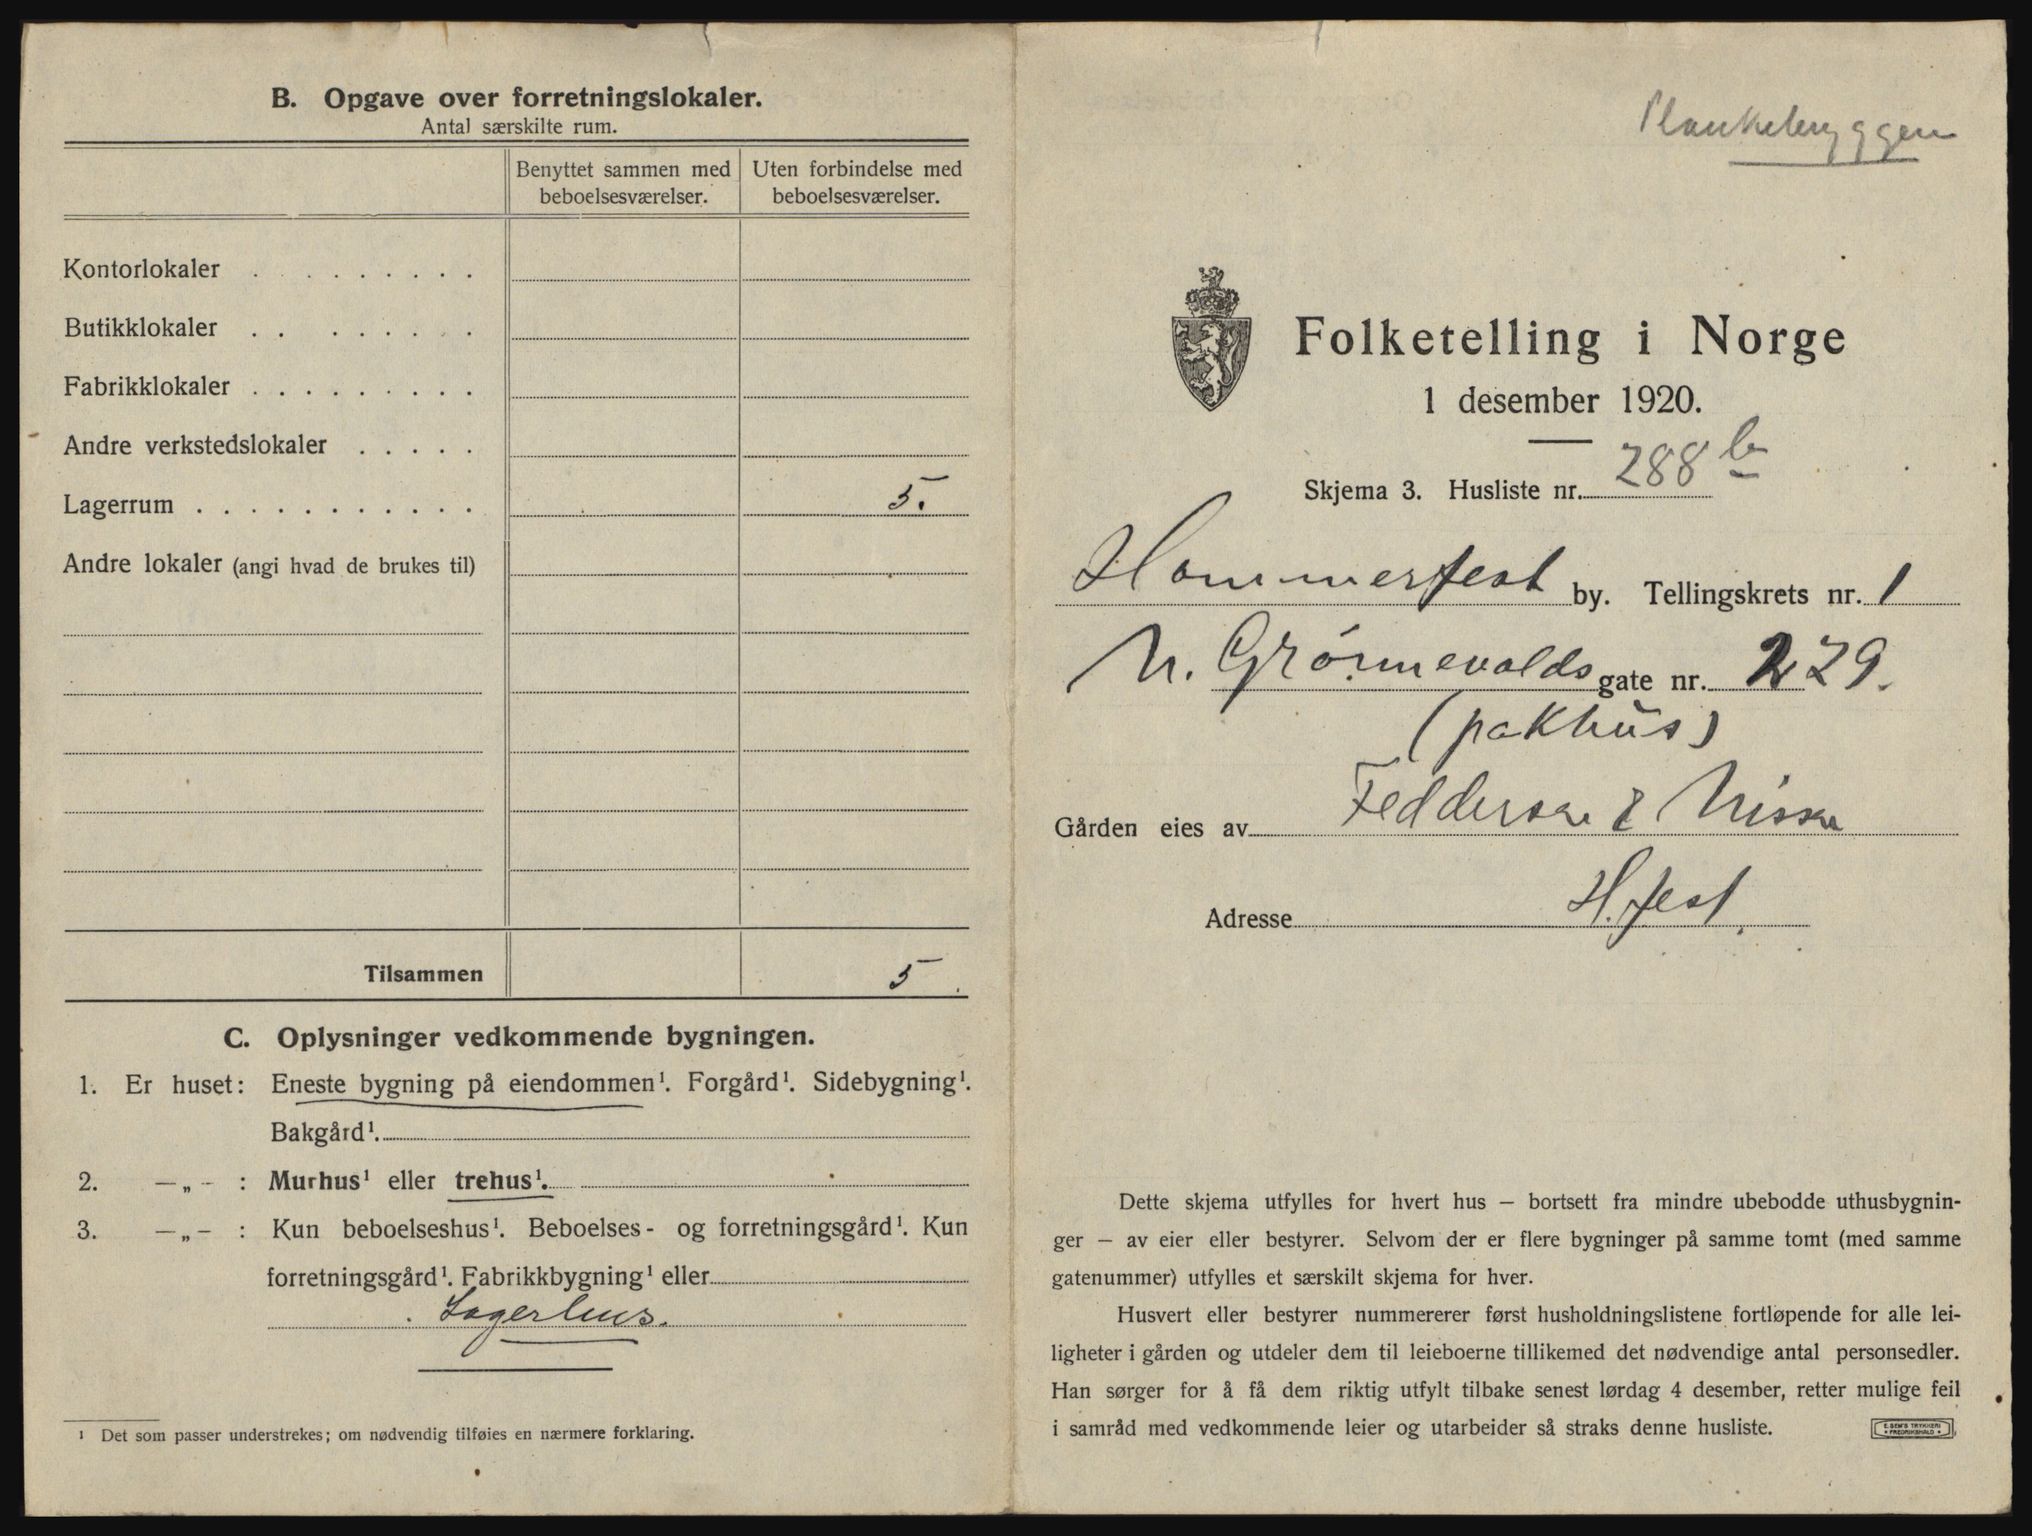 B. Opgave over forretningslokaler.
Antal særskilte rum.
Benyttet sammen med beboelsesværelser.
Uten forbindelse med beboelsesværelser.
Kontorlokaler . . . . . . . . .
Butikklokaler . . . . . . . .
Fabrikklokaler . . . . . . . . .
Andre verkstedslokaler . . . . .
Lagerrum . . . . . . . . . . . . 5.
Andre lokaler (angi hvad de brukes til)
Tilsammen 5
C. Oplysninger vedkommende bygningen.
1. Er huset: Eneste bygning på eiendommen¹. Forgård¹. Sidebygning¹.
Bakgård¹.
2. —„— : Murhus¹ eller trehus¹.
3. —„— : Kun beboelseshus¹. Beboelses- og forretningsgård¹. Kun
forretningsgård¹. Fabrikkbygning¹ eller
Lagerhus.
¹ Det som passer understrekes; om nødvendig tilføies en nærmere forklaring.
Plankebryggen
Folketelling i Norge
1 desember 1920.
Skjema 3. Husliste nr. 288 b
Hammerfest by. Tellingskrets nr. 1
N. Grønnevolds gate nr. 279.
(pakhus)
Gården eies av Feddersen & Nissen
Adresse H.fest.
Dette skjema utfylles for hvert hus – bortsett fra mindre ubebodde uthusbygnin-
ger – av eier eller bestyrer. Selvom der er flere bygninger på samme tomt (med samme
gatenummer) utfylles et særskilt skjema for hver.
Husvert eller bestyrer nummererer først husholdningslistene fortløpende for alle lei-
ligheter i gården og utdeler dem til leieboerne tillikemed det nødvendige antal personsedler.
Han sørger for å få dem riktig utfylt tilbake senest lørdag 4 desember, retter mulige feil
i samråd med vedkommende leier og utarbeider så straks denne husliste.
E. SEM'S TRYKKERI
FREDRIKSHALD